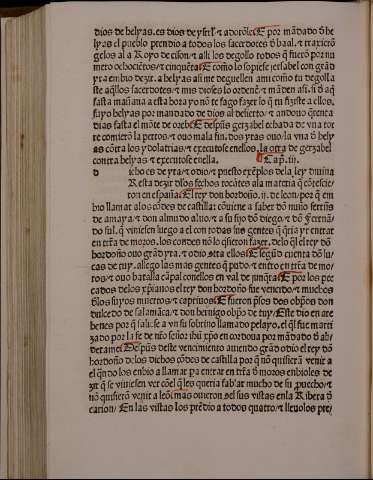 dios de helyas. es dios de ysrl. ⁊ adorólo. E por mãdado ð he
lyas el pueblo prendio a todos los sacerdotes ð baal. ⁊ traxierõ
gelos al a Royo de cison/ ⁊ alli los degollo todos q̃ fuerõ por nu
mero ochociẽtos/ ⁊ cinquẽta. E como lo sopiese jesabel con grãd
yra embio dezir. a helyas asi me deguellen a mi como tu degolla
ste aq̃llos sacerdotes/ ⁊ mis dioses lo ordenẽ/ ⁊ mãden asi. si ð aq̃
fasta mañana a esta hora yo nõ te fago fazer lo q̃ tu fiziste a ellos.
fuyo helyas por mandado de dios al desierto/ ⁊ anduuo quareta
dias fasta el mõte de oreb. E despues gezabel echada de vna tor
re comierõ la perros/ ⁊ ouo mala fin. dos yras ouo/ la vna ð hely
as cõtra los ydolatrias/ ⁊ executose en ellos. la otra de gerzabel
contra helyas ⁊ executose en ella. ¶ Cap̃. iij.
d icho es de yra/ ⁊ odio/ ⁊ puesto exẽplos de la ley diuina
R esta dezir dl̃os fechos tocãtes a la materia q̃ cõtescie/
ron en españa. El rey don hordoño. ij. de leon/ por q̃ em
bio llamar a los cõdes de castilla: cõuiene a saber dõ nuño ferrñs
de amaya/ ⁊ don almudo aluo/ ⁊ a su fijo dõ diego/ ⁊ dõ ferrnã/
do sul. q̃ viniesen luego a el con todas sus gentes q̃ q̃ria yr entrar
en trr̃a de moros. los condes nõ lo q̃sieron fazer. de lo q̃l el rey dõ
hordoño ouo grãd yra. ⁊ odio cõtra ellos. E segũd cuenta dõ lu/
cas de tuy. allego las mas gentes q̃ pudo/ ⁊ entro en trr̃a de mo/
ros/ ⁊ ouo batalla cãpal con ellos en val de junq̃ra. E por los pe
cados de los xp̃ianos el rey don hordoño fue vencido/ ⁊ muchos
ðlos suyos muertos/ ⁊ captiuos. E fueron p̃sos dos obp̃os don
dulcedo de salamãca. ⁊ don hernigo obp̃o de tuy/ Este dio en are
henes por q̃ saliese a vn su sobrino llamado pelayo. el q̃l fue marti
zado por la fe de nr̃o señor ihũ xp̃o en cordoua por mãdado ð ab/
derame. Despues deste vencimiento auiendo grãd odio el rey dõ
hordoño de los dichos cõdes de castilla por q̃ nõ quisierõ venir a
el q̃ndo los enbio a llamar pa entrar en trr̃a ð moros enbioles de
zir q̃ se viniesen ver cõ el q̃ les queria fab'ar mucho de su ꝓuecho/ ⁊
nõ quisierõ venir a leõ. mas ouieron sel sus vistas en la Ribera ð
carion/ En las vistas los prẽdio a todos quatro/ ⁊ lleuolos pre/